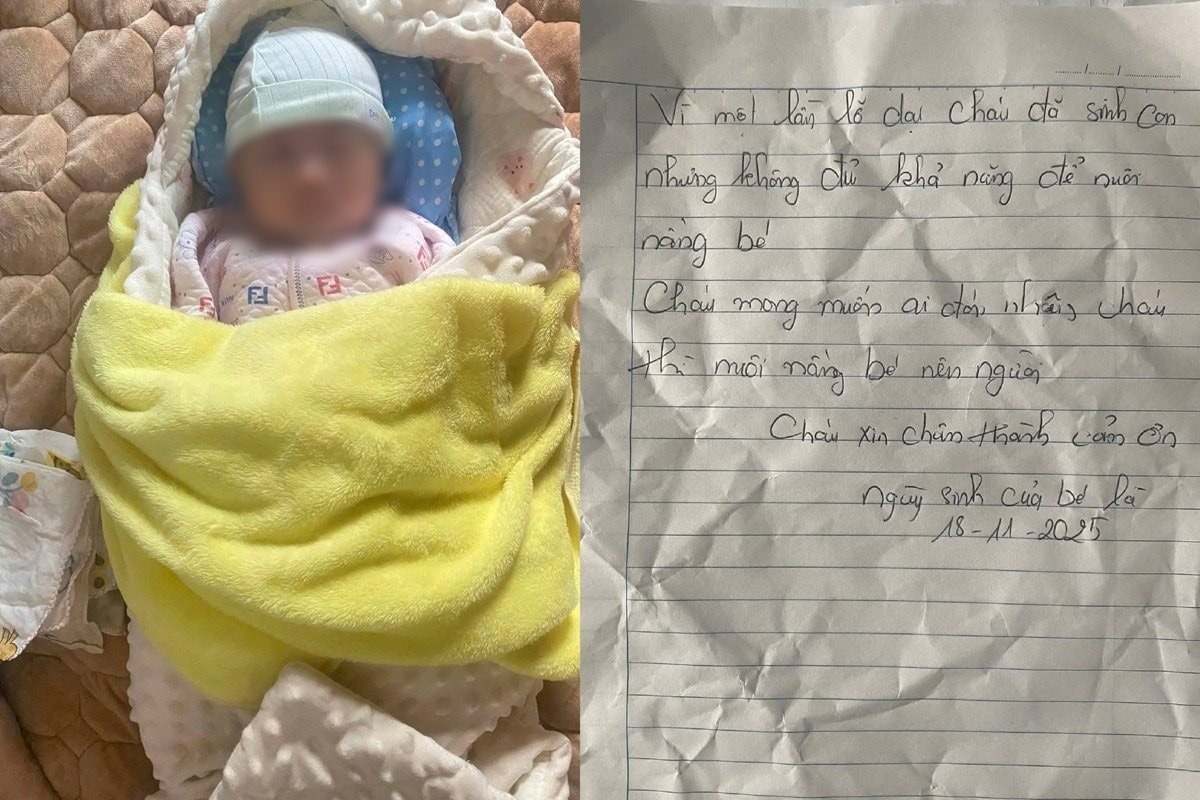 Vì một lần lỡ dại cháu đã sinh con
nhưng không đủ khả năng để nuôi
nấng bé
Cháu mong muốn ai đón nhận cháu
thì nuôi nấng bé nên người
Cháu xin chân thành cảm ơn
ngày sinh của bé là
18-11-2025